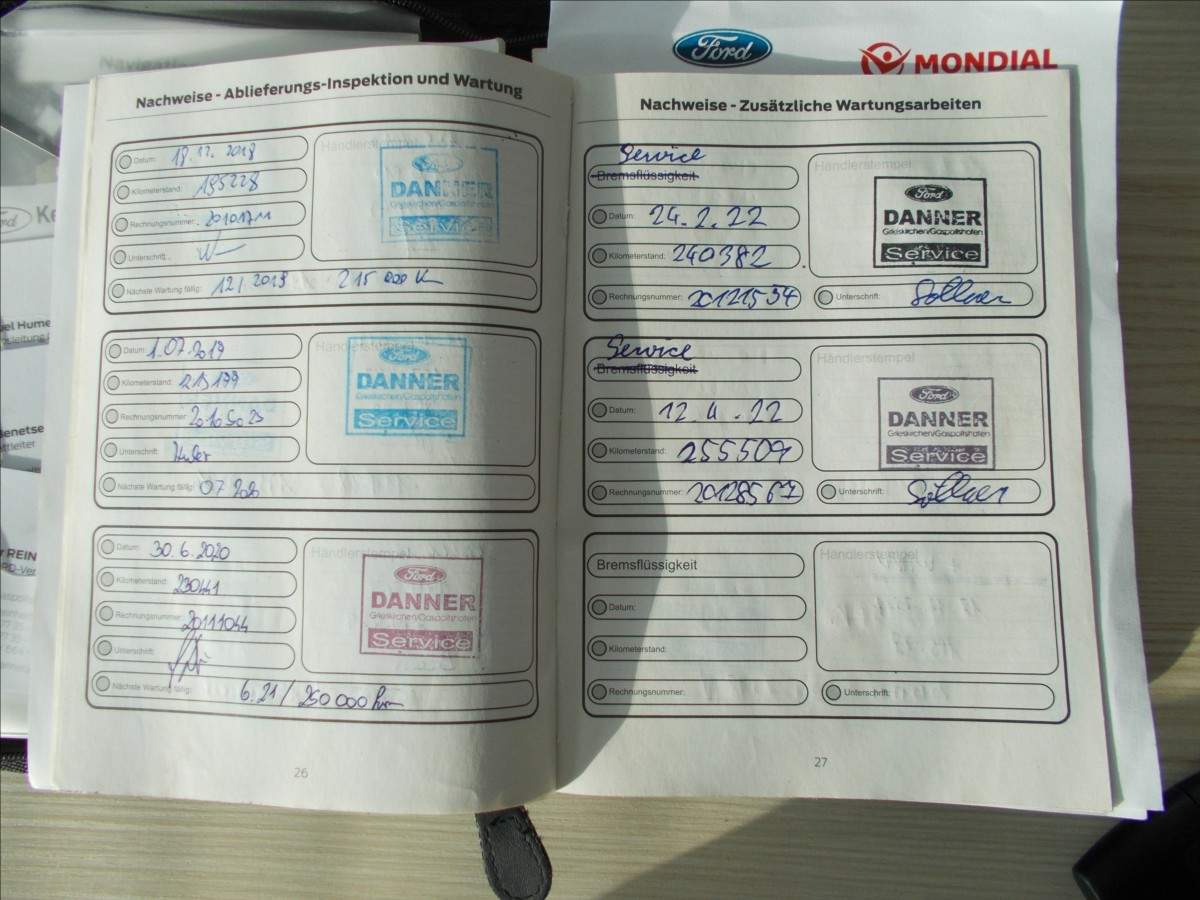 Ford
MONDIAL
Nachweise - Ablieferungs-Inspektion und Wartung
Datum: 18.12.2018
Kilometerstand: 195228
Rechnungsnummer:
Unterschrift:
Nächste Wartung fällig: 12/2019 215 000 K
Händlerstempel
Ford
DANNER
Grieskirchen/Gaspoltshofen
Service
Datum: 1.07.2019
Kilometerstand: 213199
Rechnungsnummer: 20105023
Unterschrift:
Nächste Wartung fällig: 07 2020
Händlerstempel
Ford
DANNER
Grieskirchen/Gaspoltshofen
Service
Datum: 30.6.2020
Kilometerstand: 230441
Rechnungsnummer: 20111044
Unterschrift:
Nächste Wartung fällig: 6.21/250 000 km
Händlerstempel
Ford
DANNER
Grieskirchen/Gaspoltshofen
Service
26
Nachweise - Zusätzliche Wartungsarbeiten
Service
Bremsflüssigkeit
Datum: 24.2.22
Kilometerstand: 240382
Rechnungsnummer: 20121534
Händlerstempel
Ford
DANNER
Grieskirchen/Gaspoltshofen
Service
Unterschrift:
Service
Bremsflüssigkeit
Datum: 12.4.22
Kilometerstand: 255509
Rechnungsnummer: 20128567
Händlerstempel
Ford
DANNER
Grieskirchen/Gaspoltshofen
Service
Unterschrift:
Bremsflüssigkeit
Datum:
Kilometerstand:
Rechnungsnummer:
Händlerstempel
Unterschrift:
27